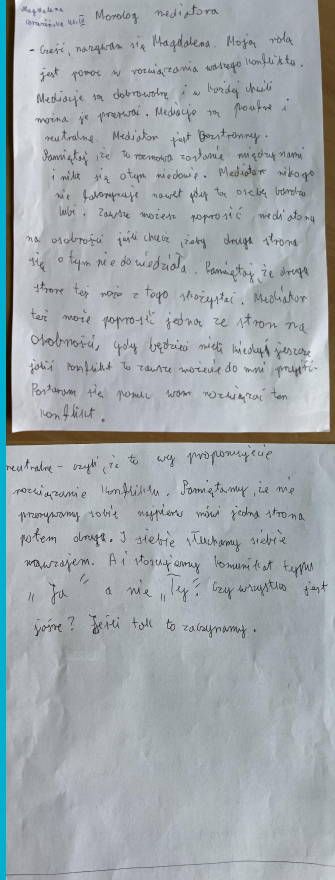 Magdalena
Monolog mediatora
- Cześć, nazywam się Magdalena. Moją rolą
jest pomoc w rozwiązaniu waszego konfliktu.
Mediacje są dobrowolne i w każdej chwili
można je przerwać. Mediacje są poufne i
neutralne. Mediator jest bezstronny.
Pamiętaj, że ta rozmowa zostanie między nami
i nikt się o tym niedowie. Mediator nikogo
nie faworyzuje nawet gdy tą osobę bardzo
lubi. Zawsze możesz poprosić mediatora
na osobności jeśli chcesz, żeby druga strona
się o tym nie dowiedziała. Pamiętaj, że druga
strona też może z tego skorzystać. Mediator
też może poprosić jedną ze stron na
osobności, gdy będzieci mieli kiedyś jeszcze
jakiś konflikt to zawsze możecie do mnie przyjść.
Postaram się pomóc wam rozwiązać ten
konflikt.
neutralne - czyli, że to wy proponujecie
rozwiązanie konfliktu. Pamiętamy, że nie
przerywamy sobie najpierw mówi jedna strona
potem druga. I siebie słuchamy siebie
nawzajem. A i stosujemy komunikat typu
"Ja" a nie "Ty". Czy wszystko jest
jasne? Jeśli tak to zaczynamy.